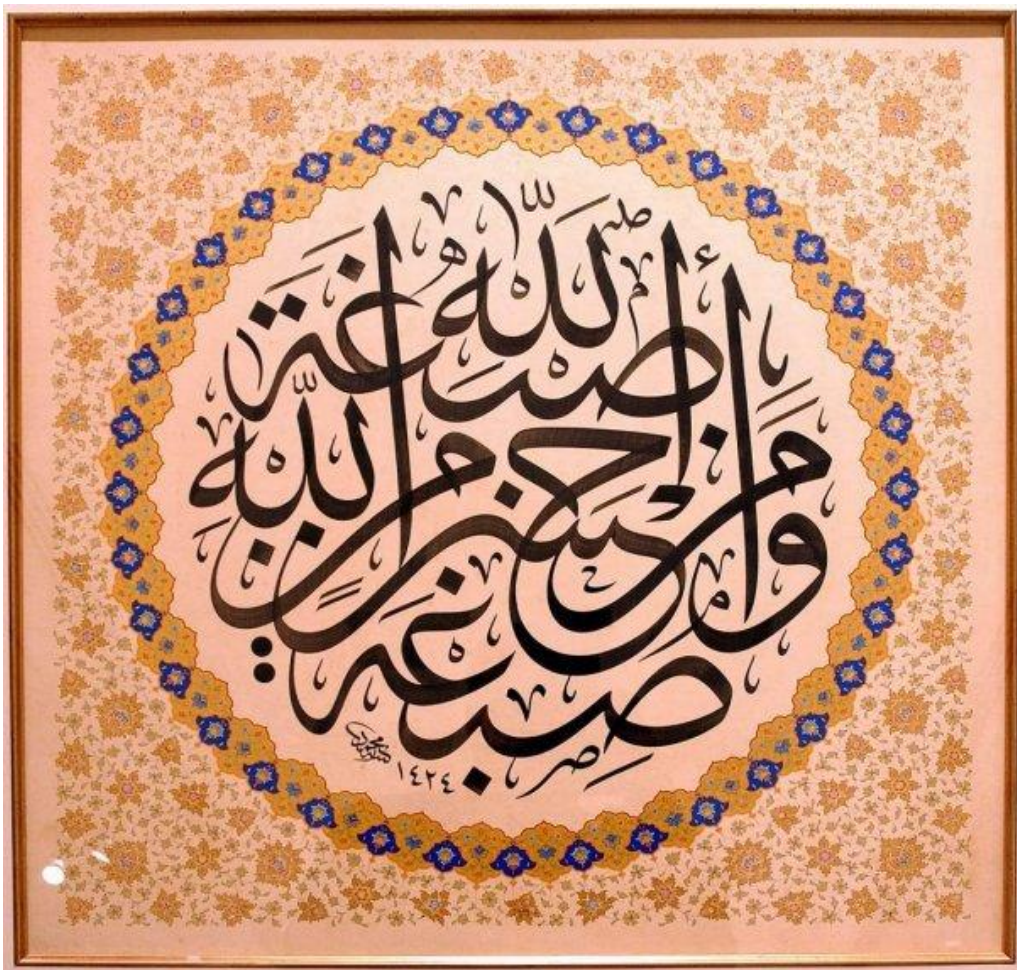 صِبْغَةَ اللَّهِ ۖ
وَمَنْ أَحْسَنُ مِنَ اللَّهِ
صِبْغَةً
١٤٢٤